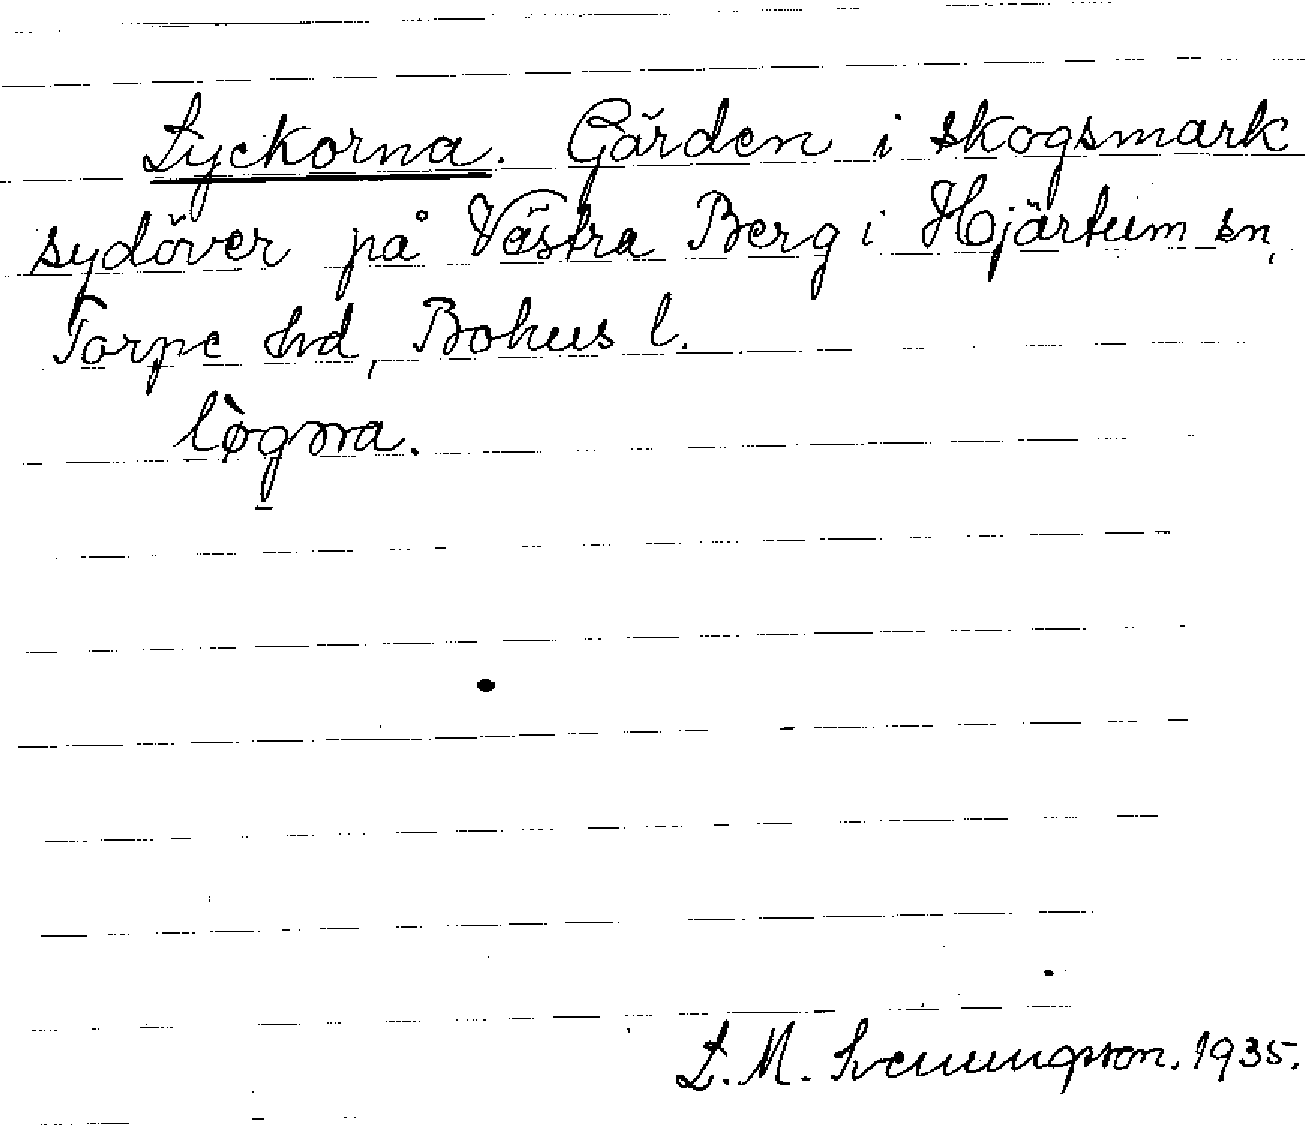 Lyckorna. Gården i skogsmark
sydöver på Västra Berg i Hjärtum sn,
Torpe hd, Bohus l.
lø̀gɔra.
L. M. Svenungsson. 1935.